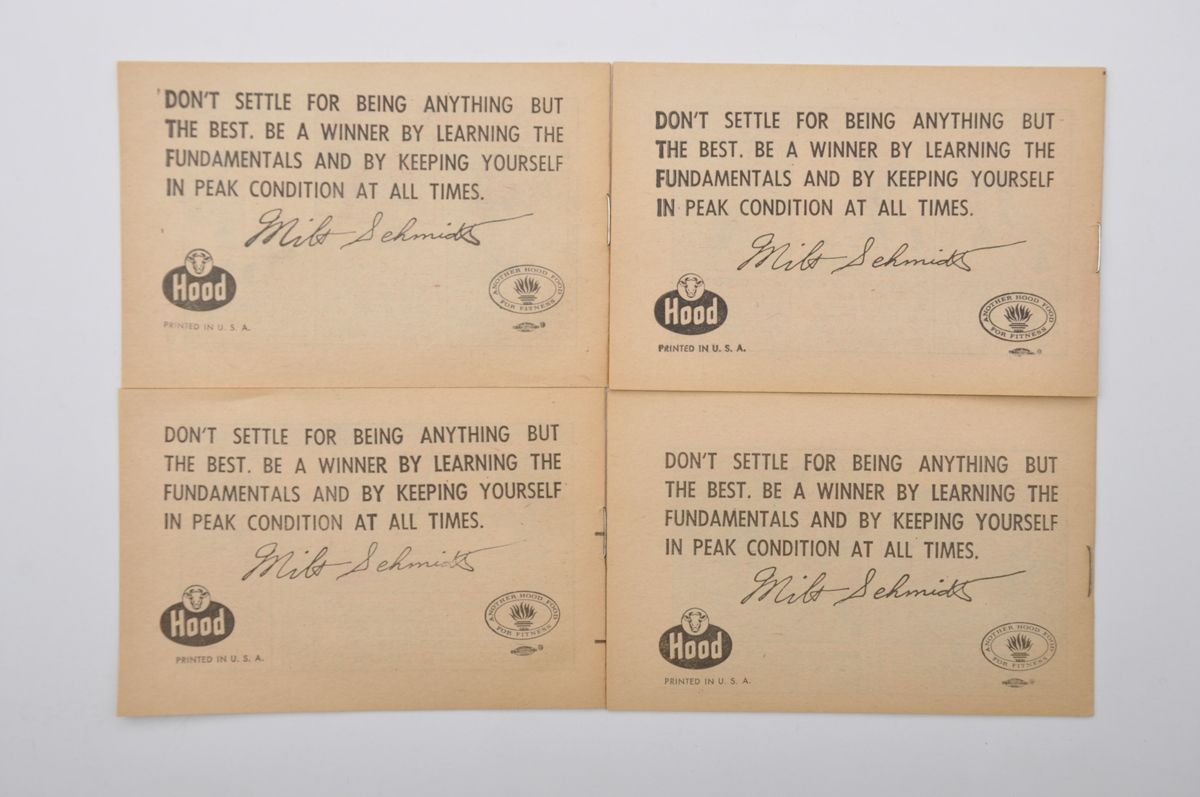 DON'T SETTLE FOR BEING ANYTHING BUT
THE BEST. BE A WINNER BY LEARNING THE
FUNDAMENTALS AND BY KEEPING YOURSELF
IN PEAK CONDITION AT ALL TIMES.
Milt Schmidt
Hood
ANOTHER HOOD FOOD
FOR FITNESS
PRINTED IN U. S. A.
DON'T SETTLE FOR BEING ANYTHING BUT
THE BEST. BE A WINNER BY LEARNING THE
FUNDAMENTALS AND BY KEEPING YOURSELF
IN PEAK CONDITION AT ALL TIMES.
Milt Schmidt
Hood
ANOTHER HOOD FOOD
FOR FITNESS
PRINTED IN U. S. A.
DON'T SETTLE FOR BEING ANYTHING BUT
THE BEST. BE A WINNER BY LEARNING THE
FUNDAMENTALS AND BY KEEPING YOURSELF
IN PEAK CONDITION AT ALL TIMES.
Milt Schmidt
Hood
ANOTHER HOOD FOOD
FOR FITNESS
PRINTED IN U. S. A.
DON'T SETTLE FOR BEING ANYTHING BUT
THE BEST. BE A WINNER BY LEARNING THE
FUNDAMENTALS AND BY KEEPING YOURSELF
IN PEAK CONDITION AT ALL TIMES.
Milt Schmidt
Hood
ANOTHER HOOD FOOD
FOR FITNESS
PRINTED IN U. S. A.